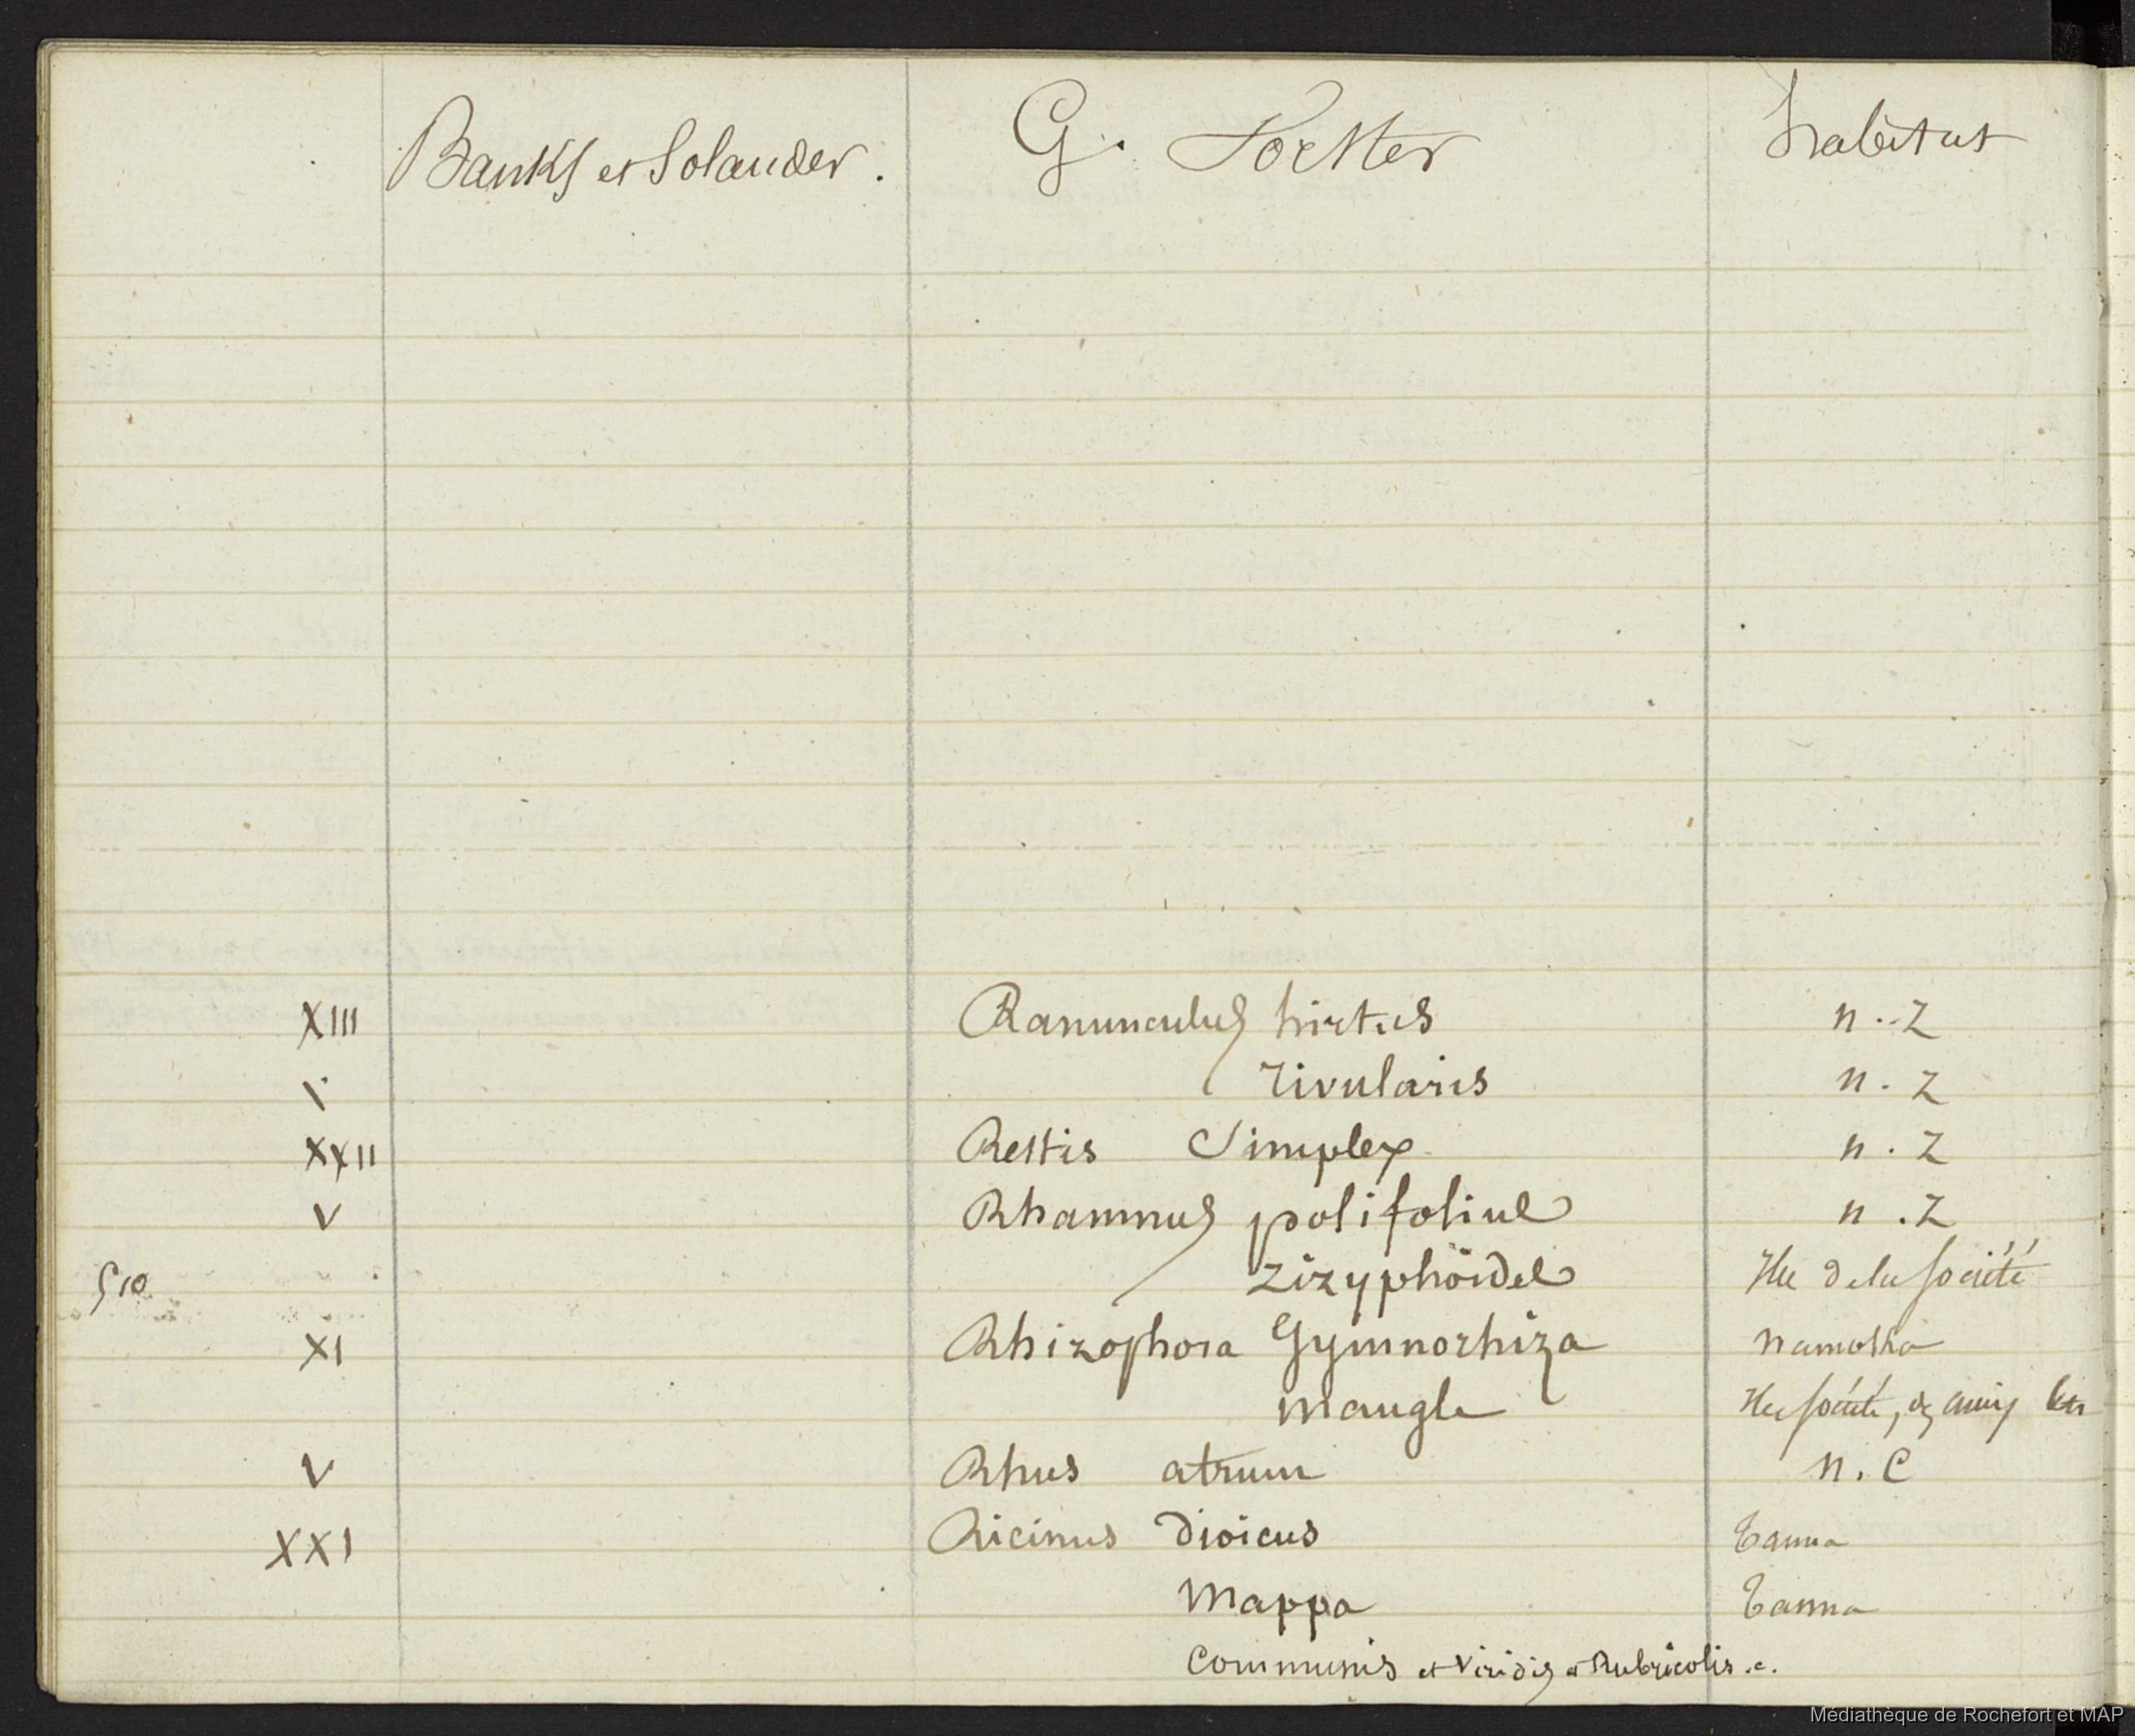 Banks et Solander. G. Forster habitat
XIII Ranunculus hirtus n..Z
V rivularis n.Z
XXII Restis Simplex n.Z
V Rhamnus polifolius n.Z
510 zizyphoides Iles de la société
XI Rhizophora Gymnorhiza namoka
mangle Iles société, des amis
V Rhus atrum n.C
XXI Ricinus dioicus Tanna
Mappa Tanna
Communis et Viridis et Rubricolis.c.
Médiathèque de Rochefort et MAP